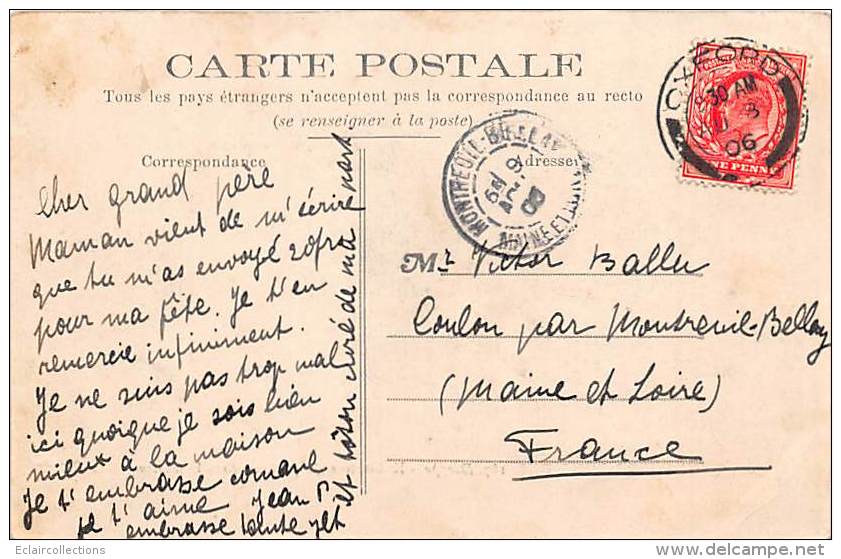 CARTE POSTALE
Tous les pays étrangers n'acceptent pas la correspondance au recto
(se renseigner à la poste)
Correspondance
Adresse
Cher grand père
Maman vient de m'écrire
que tu m'as envoyé 20frs
pour ma fête. Je t'en
remercie infiniment.
Je ne suis pas trop mal
ici quoique je sois bien
mieux à la maison
Je t'embrasse comme
je t'aime Jean
embrasse tante
et de ma part
Mr. Victor Ballu
Coulon par Montreuil-Bellay
(Maine et Loire)
France
OXFORD
8.30 AM
AU 8
06
ONE PENNY
MONTREUIL-BELLAY
9
MAINE ET
Eclaircollections
delcampe.net